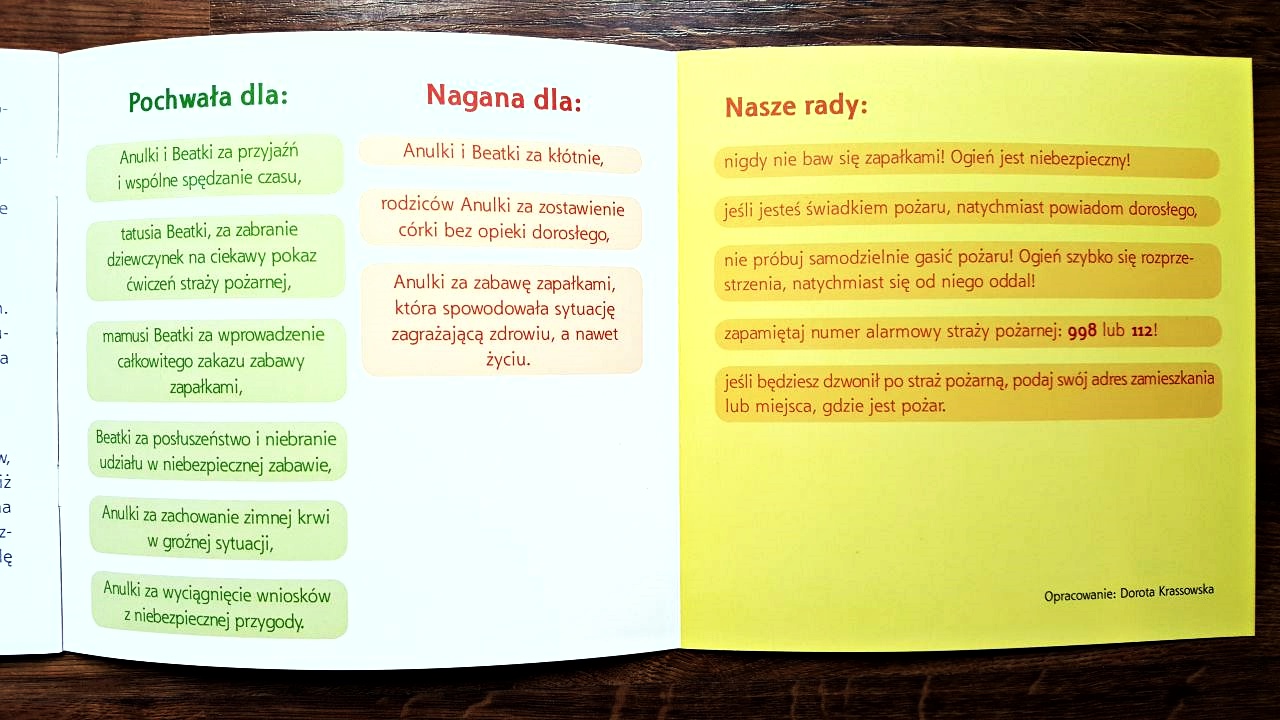 Pochwała dla:
Anulki i Beatki za przyjaźń
i wspólne spędzanie czasu,
tatusia Beatki, za zabranie
dziewczynek na ciekawy pokaz
ćwiczeń straży pożarnej,
mamusi Beatki za wprowadzenie
całkowitego zakazu zabawy
zapałkami,
Beatki za posłuszeństwo i niebranie
udziału w niebezpiecznej zabawie,
Anulki za zachowanie zimnej krwi
w groźnej sytuacji,
Anulki za wyciągnięcie wniosków
z niebezpiecznej przygody.
Nagana dla:
Anulki i Beatki za kłótnie,
rodziców Anulki za zostawienie
córki bez opieki dorosłego,
Anulki za zabawę zapałkami,
która spowodowała sytuację
zagrażającą zdrowiu, a nawet
życiu.
Nasze rady:
nigdy nie baw się zapałkami! Ogień jest niebezpieczny!
jeśli jesteś świadkiem pożaru, natychmiast powiadom dorosłego,
nie próbuj samodzielnie gasić pożaru! Ogień szybko się rozprze-
strzenia, natychmiast się od niego oddal!
zapamiętaj numer alarmowy straży pożarnej: 998 lub 112!
jeśli będziesz dzwonił po straż pożarną, podaj swój adres zamieszkania
lub miejsca, gdzie jest pożar.
Opracowanie: Dorota Krassowska